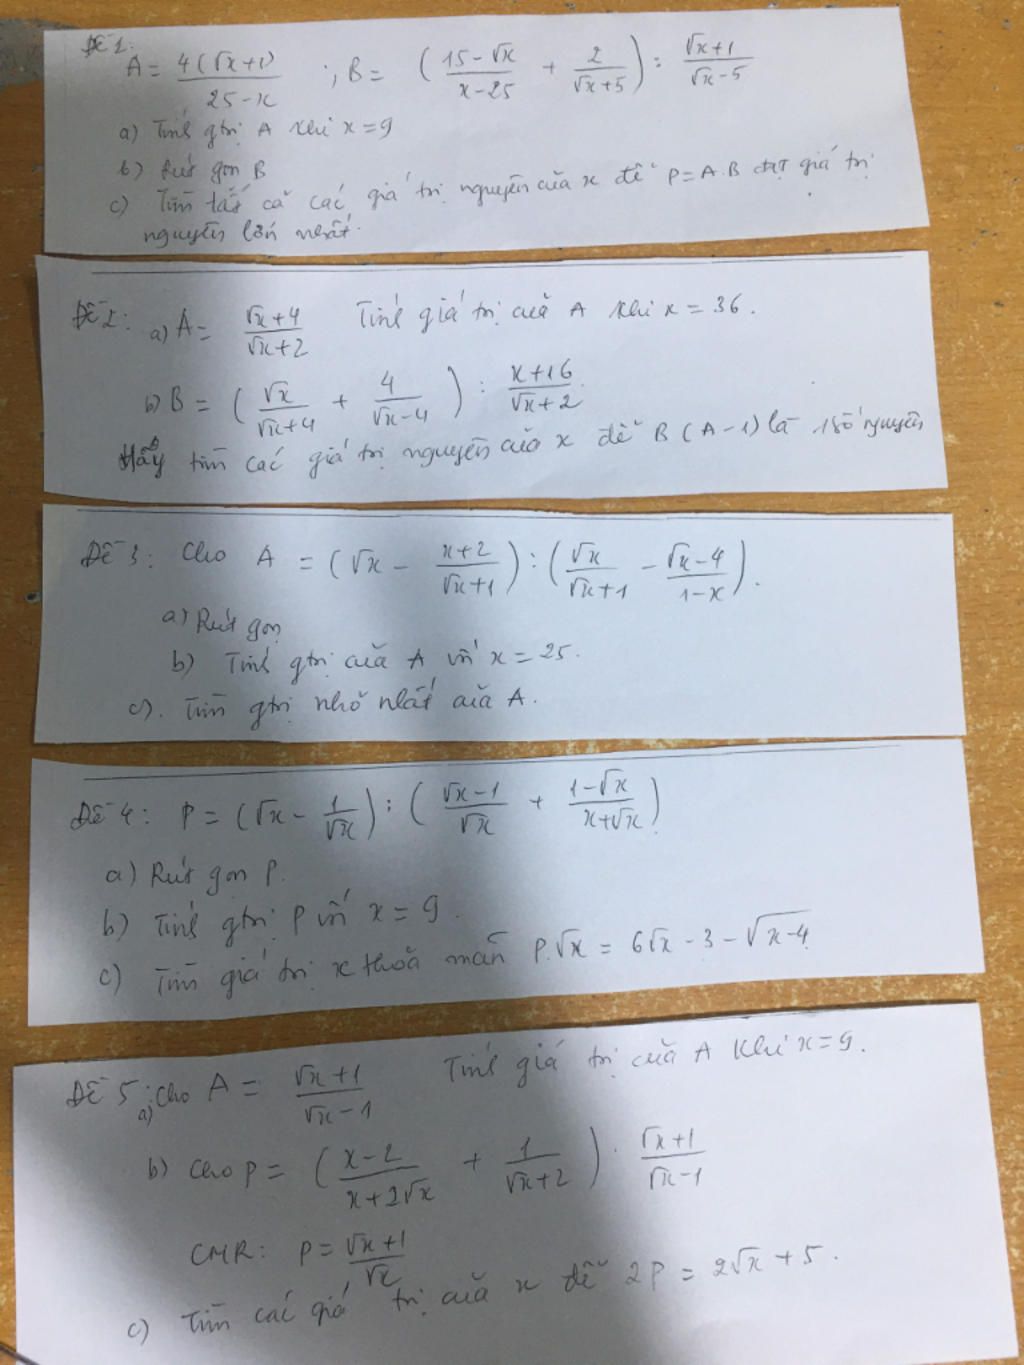 Đề 1:
A = 4(√x+1) / 25-x ; B = (15-√x / x-25 + 2 / √x+5) : √x+1 / √x-5
a) Tính gtrị A khi x = 9
b) Rút gọn B
c) Tìm tất cả các giá trị nguyên của x để P = A.B đạt giá trị
nguyên lớn nhất.
Đề 2: a) A = √x+4 / √x+2 Tính giá trị của A khi x = 36.
b) B = (√x / √x+4 + 4 / √x-4) : x+16 / √x+2
Hãy tìm các giá trị nguyên của x để B(A-1) là 1 số nguyên
Đề 3: Cho A = (√x - x+2 / √x+1) : (√x / √x+1 - √x-4 / 1-x).
a) Rút gọn
b) Tính gtrị của A với x = 25.
c). Tìm gtrị nhỏ nhất của A.
Đề 4: P = (√x - 1 / √x) : (√x-1 / √x + 1-√x / x+√x)
a) Rút gọn P.
b) Tính gtrị P với x = 9.
c) Tìm giá trị x thoả mãn P.√x = 6√x - 3 - √x-4
Đề 5: a) Cho A = √x+1 / √x-1 Tính giá trị của A khi x = 9.
b) Cho P = (x-2 / x+2√x + 1 / √x+2) . √x+1 / √x-1
CMR: P = √x+1 / √x
c) Tìm các giá trị của x để 2P = 2√x + 5.